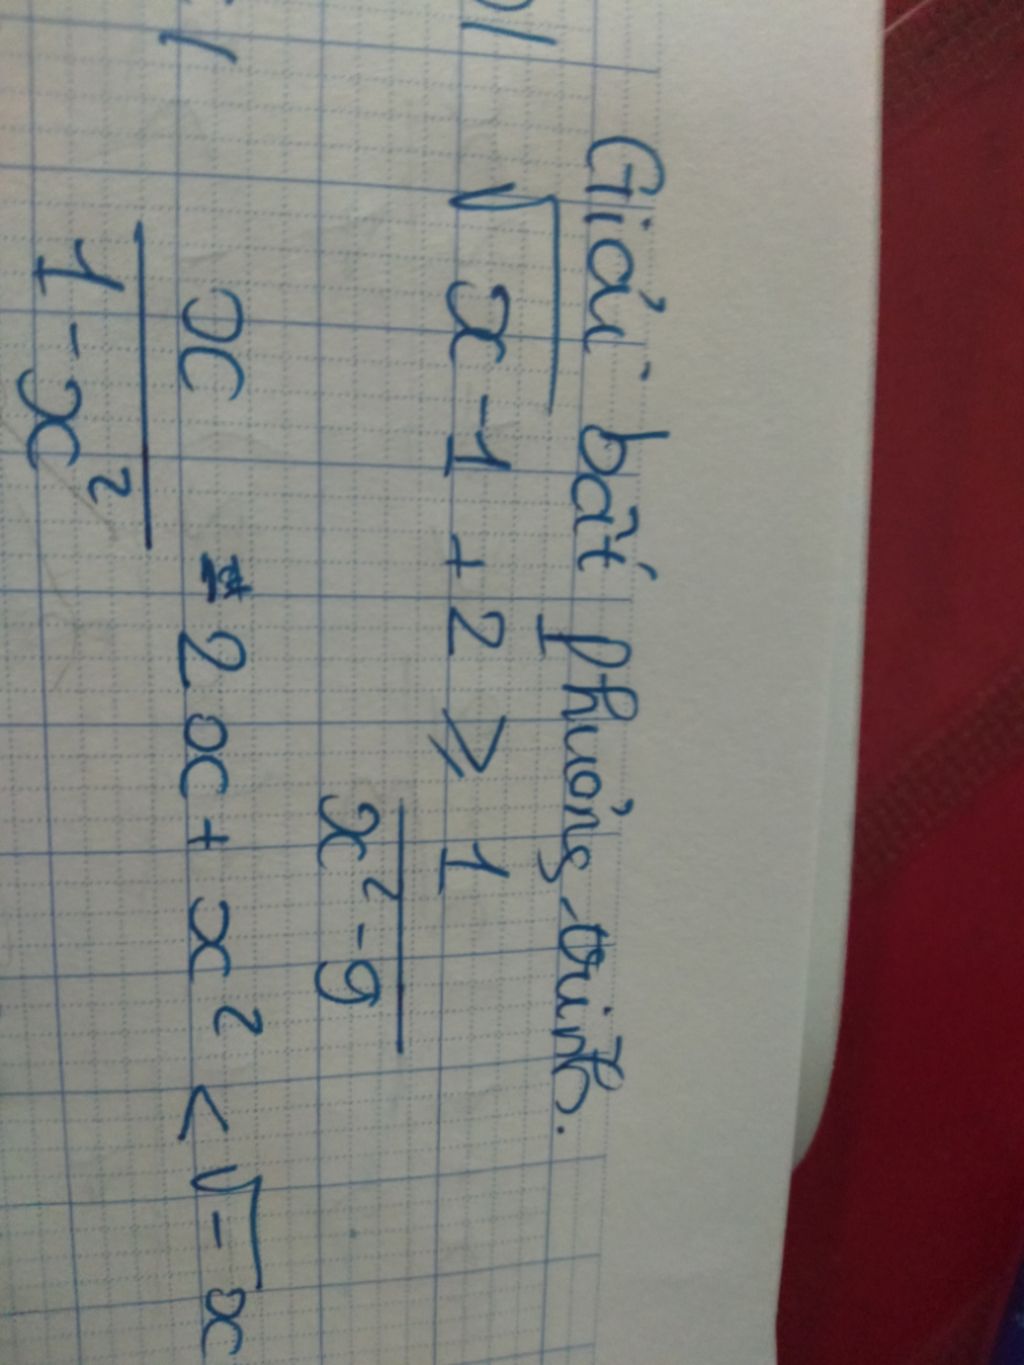 Giải bất phương trình.
√(x-1) + 2 ≥ 1/(x²-9)
x/(1-x²) - 2x + x² < √-x